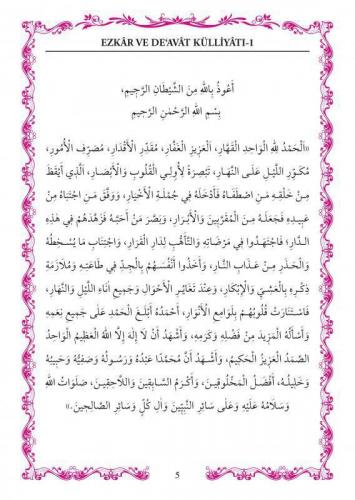 EZKÂR VE DE'AVÂT KÜLLİYÂTI-1
أَعُوذُ بِاللّٰهِ مِنَ الشَّيْطَانِ الرَّجِيمِ،
بِسْمِ اللّٰهِ الرَّحْمٰنِ الرَّحِيمِ
«اَلْحَمْدُ لِلّٰهِ الْوَاحِدِ الْقَهَّارِ، اَلْعَزِيزِ الْغَفَّارِ، مُقَدِّرِ الْأَقْدَارِ، مُصَرِّفِ الْأُمُورِ،
مُكَوِّرِ اللَّيْلِ عَلَى النَّهَارِ، تَبْصِرَةً لِأُولِي الْقُلُوبِ وَالْأَبْصَارِ، اَلَّذِي أَيْقَظَ
مِنْ خَلْقِهِ مَنِ اصْطَفَاهُ فَأَدْخَلَهُ فِي جُمْلَةِ الْأَخْيَارِ، وَوَفَّقَ مَنِ اجْتَبَاهُ مِنْ
عَبِيدِهِ فَجَعَلَهُ مِنَ الْمُقَرَّبِينَ وَالْأَبْرَارِ، وَبَصَّرَ مَنْ أَحَبَّهُ فَزَهَّدَهُمْ فِي هٰذِهِ
الدَّارِ، فَاجْتَهَدُوا فِي مَرْضَاتِهِ وَالتَّأَهُّبِ لِدَارِ الْقَرَارِ، وَاجْتِنَابِ مَا يُسْخِطُهُ
وَالْحَذَرِ مِنْ عَذَابِ النَّارِ، وَأَخَذُوا أَنْفُسَهُمْ بِالْجِدِّ فِي طَاعَتِهِ وَمُلَازَمَةِ
ذِكْرِهِ بِالْعَشِيِّ وَالْإِبْكَارِ، وَعِنْدَ تَغَايُرِ الْأَحْوَالِ وَجَمِيعِ آنَاءِ اللَّيْلِ وَالنَّهَارِ،
فَاسْتَنَارَتْ قُلُوبُهُمْ بِلَوَامِعِ الْأَنْوَارِ، أَحْمَدُهُ أَبْلَغَ الْحَمْدِ عَلَى جَمِيعِ نِعَمِهِ
وَأَسْأَلُهُ الْمَزِيدَ مِنْ فَضْلِهِ وَكَرَمِهِ، وَأَشْهَدُ أَنْ لَا إِلٰهَ إِلَّا اللّٰهُ الْعَظِيمُ الْوَاحِدُ
الصَّمَدُ الْعَزِيزُ الْحَكِيمُ، وَأَشْهَدُ أَنَّ مُحَمَّدًا عَبْدُهُ وَرَسُولُهُ وَصَفِيُّهُ وَحَبِيبُهُ
وَخَلِيلُهُ، أَفْضَلُ الْمَخْلُوقِينَ، وَأَكْرَمُ السَّابِقِينَ وَاللَّاحِقِينَ، صَلَوَاتُ اللّٰهِ
وَسَلَامُهُ عَلَيْهِ وَعَلَى سَائِرِ النَّبِيِّينَ وَآلِ كُلٍّ وَسَائِرِ الصَّالِحِينَ.»
5